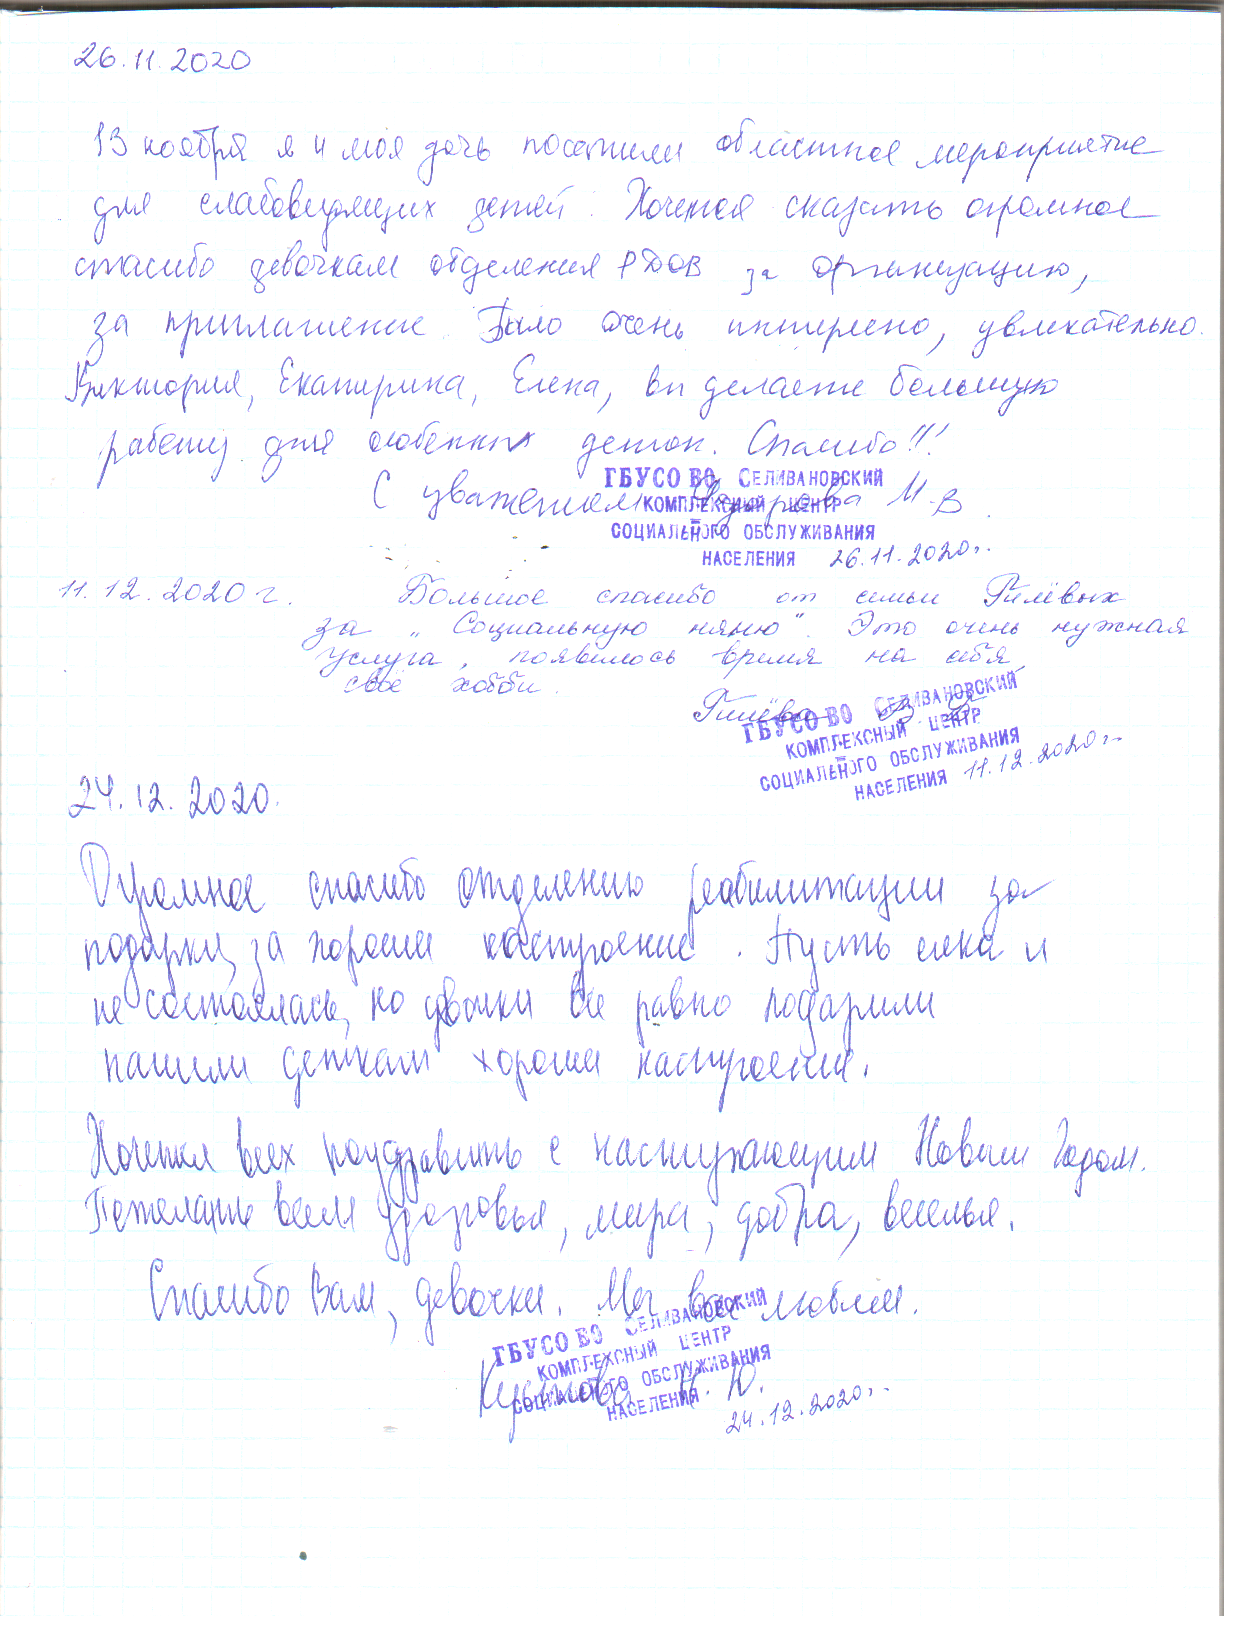 26.11.2020
13 ноября я и моя дочь посетили областное мероприятие
для слабовидящих детей. Хочется сказать огромное
спасибо девочкам отделения РДОВ за организацию,
за приглашение. Было очень интерено, увлекательно.
Виктория, Екатирина, Елена, вы делаете большую
работу для особенных деток. Спасибо!!!
С уважением М.В.
ГБУСО ВО СЕЛИВАНОВСКИЙ
КОМПЛЕКСНЫЙ ЦЕНТР
СОЦИАЛЬНОГО ОБСЛУЖИВАНИЯ
НАСЕЛЕНИЯ 26.11.2020г.
11.12.2020 г. Большое спасибо от семьи Гилёвых
за "Социальную няню". Это очень нужная
услуга, появилось время на себя,
своё хобби.
Гилёва
ГБУСО ВО СЕЛИВАНОВСКИЙ
КОМПЛЕКСНЫЙ ЦЕНТР
СОЦИАЛЬНОГО ОБСЛУЖИВАНИЯ
НАСЕЛЕНИЯ 11.12.2020г.
24.12.2020.
Огромное спасибо отделению реабилитации за
подарки, за хорошее настроение. Пусть елка и
не состоялась, но девочки все равно подарили
нашим деткам хорошее настроение.
Хочется всех поздравить с наступающим Новым Годом.
Пожелать всем здоровья, мира, добра, веселья.
Спасибо Вам, девочки. Мы вас любим.
ГБУСО ВО СЕЛИВАНОВСКИЙ
КОМПЛЕКСНЫЙ ЦЕНТР
СОЦИАЛЬНОГО ОБСЛУЖИВАНИЯ
НАСЕЛЕНИЯ
Н.Ю.
24.12.2020г.